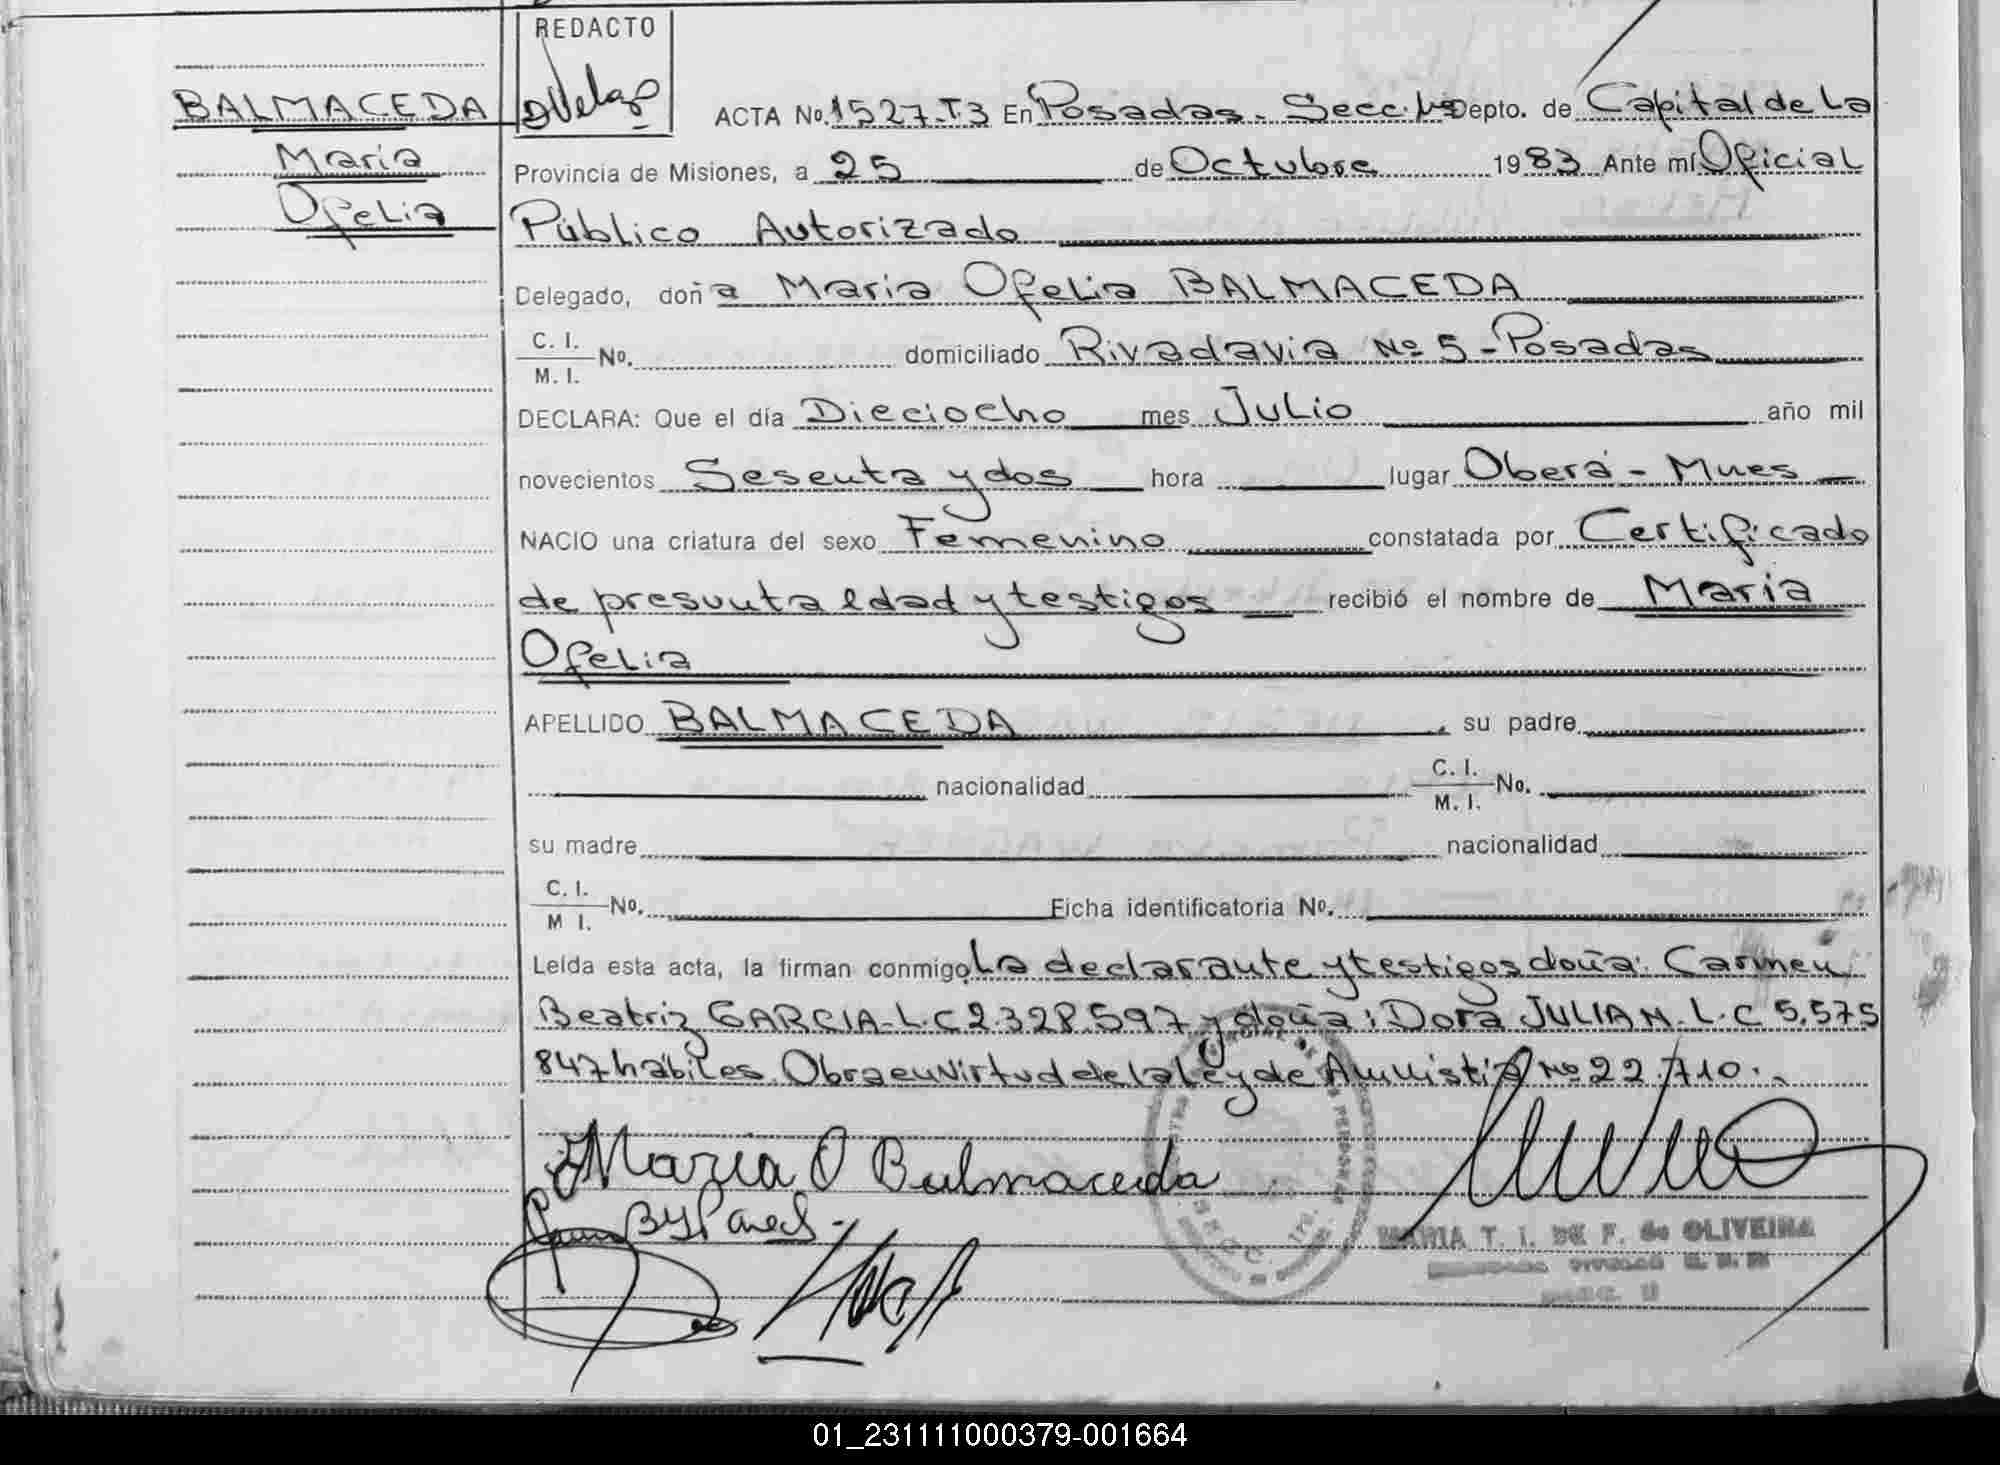 REDACTO
BALMACEDA
Maria
Ofelia
ACTA No. 1527-T3 En Posadas - Secc. Depto. de Capital de La
Provincia de Misiones, a 25 de Octubre 1983 Ante mí Oficial
Público Autorizado
Delegado, doña Maria Ofelia BALMACEDA
C. I. M. I. No. domiciliado Rivadavia No 5 - Posadas
DECLARA: Que el día Dieciocho mes Julio año mil
novecientos Sesenta y dos hora lugar Oberá - Mnes
NACIO una criatura del sexo Femenino constatada por Certificado
de presunta edad y testigos recibió el nombre de Maria
Ofelia
APELLIDO BALMACEDA, su padre
nacionalidad C. I. M. I. No.
su madre nacionalidad
C. I. M I. No. Ficha identificatoria No.
Leída esta acta, la firman conmigo, La declarante y testigos doña: Carmen
Beatriz GARCIA - L.C 2.328.597 y doña: Dora JULIAN. L.C 5.575
847 hábiles. Obra en virtud de la ley de Amnistía No 22.710.
Maria O Balmaceda
MARIA T. I. DE F. de OLIVEIRA
01_231111000379-001664